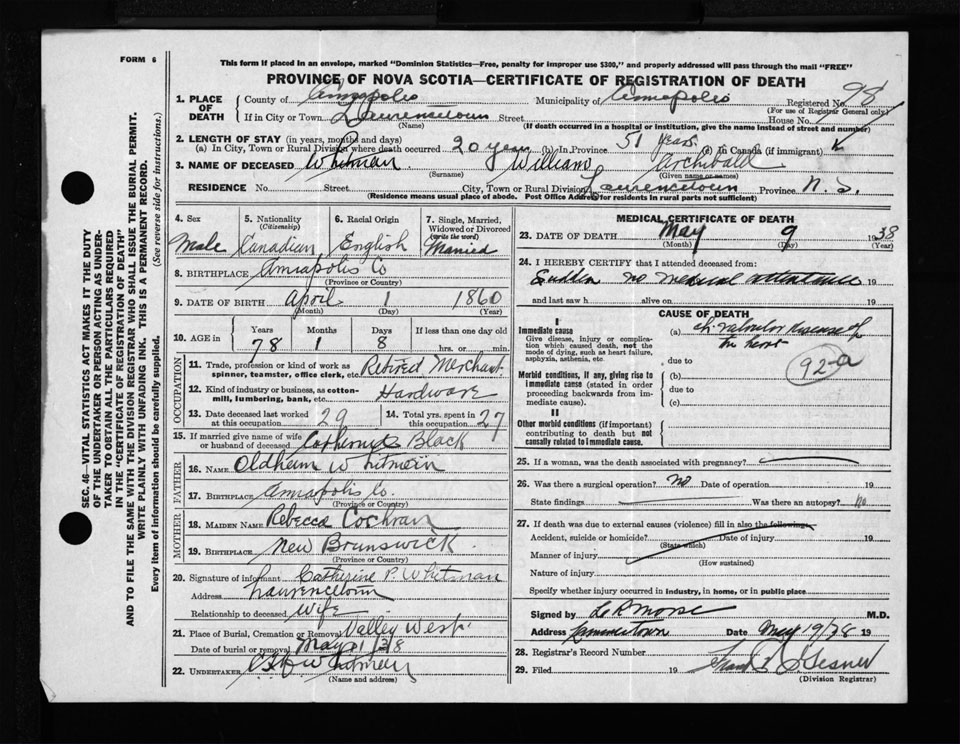 FORM 6
This form if placed in an envelope, marked "Dominion Statistics—Free, penalty for improper use $300," and properly addressed will pass through the mail "FREE"
PROVINCE OF NOVA SCOTIA—CERTIFICATE OF REGISTRATION OF DEATH
1. PLACE OF DEATH { County of Annapolis Municipality of Annapolis Registered No. 98
(For use of Registrar General only)
If in City or Town Laurencetown Street House No.
(Name) (If death occurred in a hospital or institution, give the name instead of street and number)
2. LENGTH OF STAY (in years, months and days)
(a) In City, Town or Rural Division where death occurred 20 years (b) In Province 51 years (c) In Canada (if immigrant)
3. NAME OF DECEASED Whitman William Archibald
(Surname) (Given name or names)
RESIDENCE No. Street City, Town or Rural Division Laurencetown Province N. S.
(Residence means usual place of abode. Post Office Address for residents in rural parts not sufficient)
4. Sex 5. Nationality (Citizenship) 6. Racial Origin 7. Single, Married, Widowed or Divorced (write the word)
Male Canadian English Married
8. BIRTHPLACE Annapolis Co
(Province or Country)
9. DATE OF BIRTH April 1 1860
(Month) (Day) (Year)
10. AGE in Years Months Days If less than one day old
78 1 8 hrs. or min.
OCCUPATION
11. Trade, profession or kind of work as spinner, teamster, office clerk, etc. Retired Merchant
12. Kind of industry or business, as cotton-mill, lumbering, bank, etc. Hardware
13. Date deceased last worked at this occupation 29 14. Total yrs. spent in this occupation 27
15. If married give name of wife or husband of deceased Black
FATHER
16. NAME Whitman
17. BIRTHPLACE Annapolis Co.
(Province or Country)
MOTHER
18. MAIDEN NAME Rebecca Cochran
19. BIRTHPLACE New Brunswick
(Province or Country)
20. Signature of informant Catherine P. Whitman
Address Laurencetown
Relationship to deceased Wife
21. Place of Burial, Cremation or Removal Valley West
Date of burial or removal May 11/38
22. UNDERTAKER Whitman
(Name and address)
MEDICAL CERTIFICATE OF DEATH
23. DATE OF DEATH May 9 1938
(Month) (Day) (Year)
24. I HEREBY CERTIFY that I attended deceased from:
Sudden no medical attendance 19
and last saw h alive on 19
CAUSE OF DEATH
I
Immediate cause (a) ch valvular disease of
Give disease, injury or complication which caused death, not the mode of dying, such as heart failure, asphyxia, asthenia, etc.
the heart
due to
92-a
Morbid conditions, if any, giving rise to immediate cause (stated in order proceeding backwards from immediate cause).
(b)
due to
(c)
II
Other morbid conditions (if important) contributing to death but not causally related to immediate cause.
25. If a woman, was the death associated with pregnancy?
26. Was there a surgical operation? No Date of operation 19
State findings Was there an autopsy? No
27. If death was due to external causes (violence) fill in also the following:
Accident, suicide or homicide? Date of injury 19
(State which)
Manner of injury
(How sustained)
Nature of injury
Specify whether injury occurred in industry, in home, or in public place
Signed by L R Morse M.D.
Address Lawrencetown Date May 19/38 19
28. Registrar's Record Number
29. Filed 19 Gesner
(Division Registrar)
SEC. 46—VITAL STATISTICS ACT MAKES IT THE DUTY
OF THE UNDERTAKER OR PERSON ACTING AS UNDER-
TAKER TO OBTAIN ALL THE PARTICULARS REQUIRED
IN THE "CERTIFICATE OF REGISTRATION OF DEATH"
AND TO FILE THE SAME WITH THE DIVISION REGISTRAR WHO SHALL ISSUE THE BURIAL PERMIT.
WRITE PLAINLY WITH UNFADING INK. THIS IS A PERMANENT RECORD.
Every item of information should be carefully supplied. (See reverse side for instructions.)